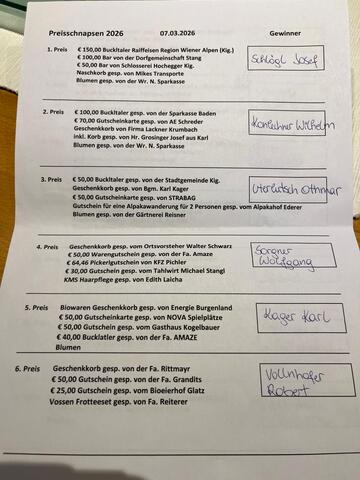 Preisschnapsen 2026 07.03.2026 Gewinner
1. Preis € 150,00 Buckltaler Raiffeisen Region Wiener Alpen (Kig.)
€ 100,00 Bar von der Dorfgemeinschaft Stang
€ 50,00 Bar von Schlosserei Hochegger Kig.
Naschkorb gesp. von Mikes Transporte
Blumen gesp. von der Wr. N. Sparkasse
Schlögl Josef
2. Preis € 100,00 Buckltaler gesp. von der Sparkasse Baden
€ 70,00 Gutscheinkarte gesp. von AE Schreder
Geschenkkorb von Firma Lackner Krumbach
inkl. Korb gesp. von Hr. Grosinger Josef aus Karl
Blumen gesp. von der Wr. N. Sparkasse
Wilhelm
3. Preis € 50,00 Buckltaler gesp. von der Stadtgemeinde Kig.
Geschenkkorb gesp. von Bgm. Karl Kager
€ 50,00 Gutscheinkarte gesp. von STRABAG
Gutschein für eine Alpakawanderung für 2 Personen gesp. vom Alpakahof Ederer
Blumen gesp. von der Gärtnerei Reisner
Othmar
4. Preis Geschenkkorb gesp. vom Ortsvorsteher Walter Schwarz
€ 50,00 Warengutschein gesp. von der Fa. Amaze
€ 64,46 Pickerlgutschein von KFZ Pichler
€ 30,00 Gutschein gesp. vom Tahlwirt Michael Stangl
KMS Haarpflege gesp. von Edith Laicha
Sorger
Wolfgang
5. Preis Biowaren Geschenkkorb gesp. von Energie Burgenland
€ 50,00 Gutscheinkarte gesp. von NOVA Spielplätze
€ 50,00 Gutschein gesp. vom Gasthaus Kogelbauer
€ 40,00 Bucklatler gesp. von der Fa. AMAZE
Blumen
Kager Karl
6. Preis Geschenkkorb gesp. von der Fa. Rittmayr
€ 50,00 Gutschein gesp. von der Fa. Grandits
€ 25,00 Gutschein gesp. vom Bioeierhof Glatz
Vossen Frotteeset gesp. von Fa. Reiterer
Vollnhofer
Robert